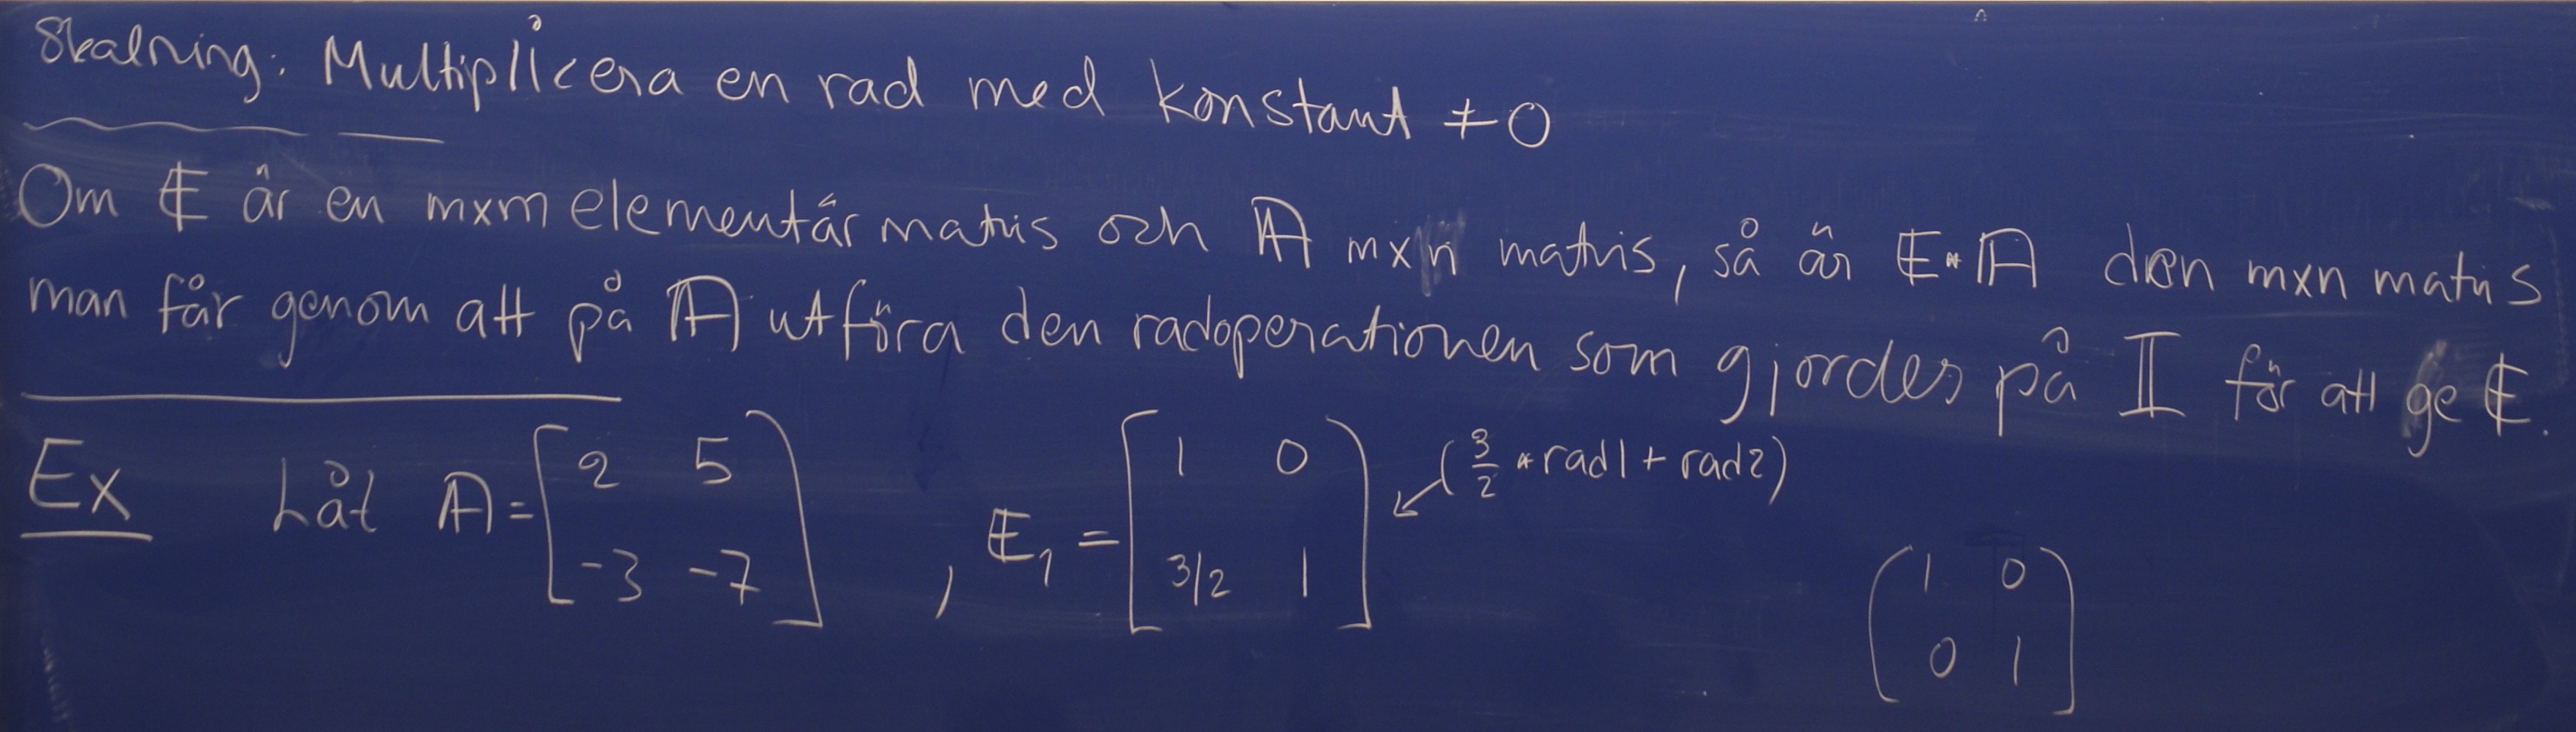 Skalning: Multiplicera en rad med konstant ≠0
Om E är en mxm elementär matris och A mxn matris, så är E*A den mxn matris
man får genom att på A utföra den radoperationen som gjordes på I för att ge E.
Ex Låt A = [2 5
-3 -7] , E₁ = [1 0
3/2 1] ↙ (3/2 * rad1 + rad2)
(1 0
0 1)